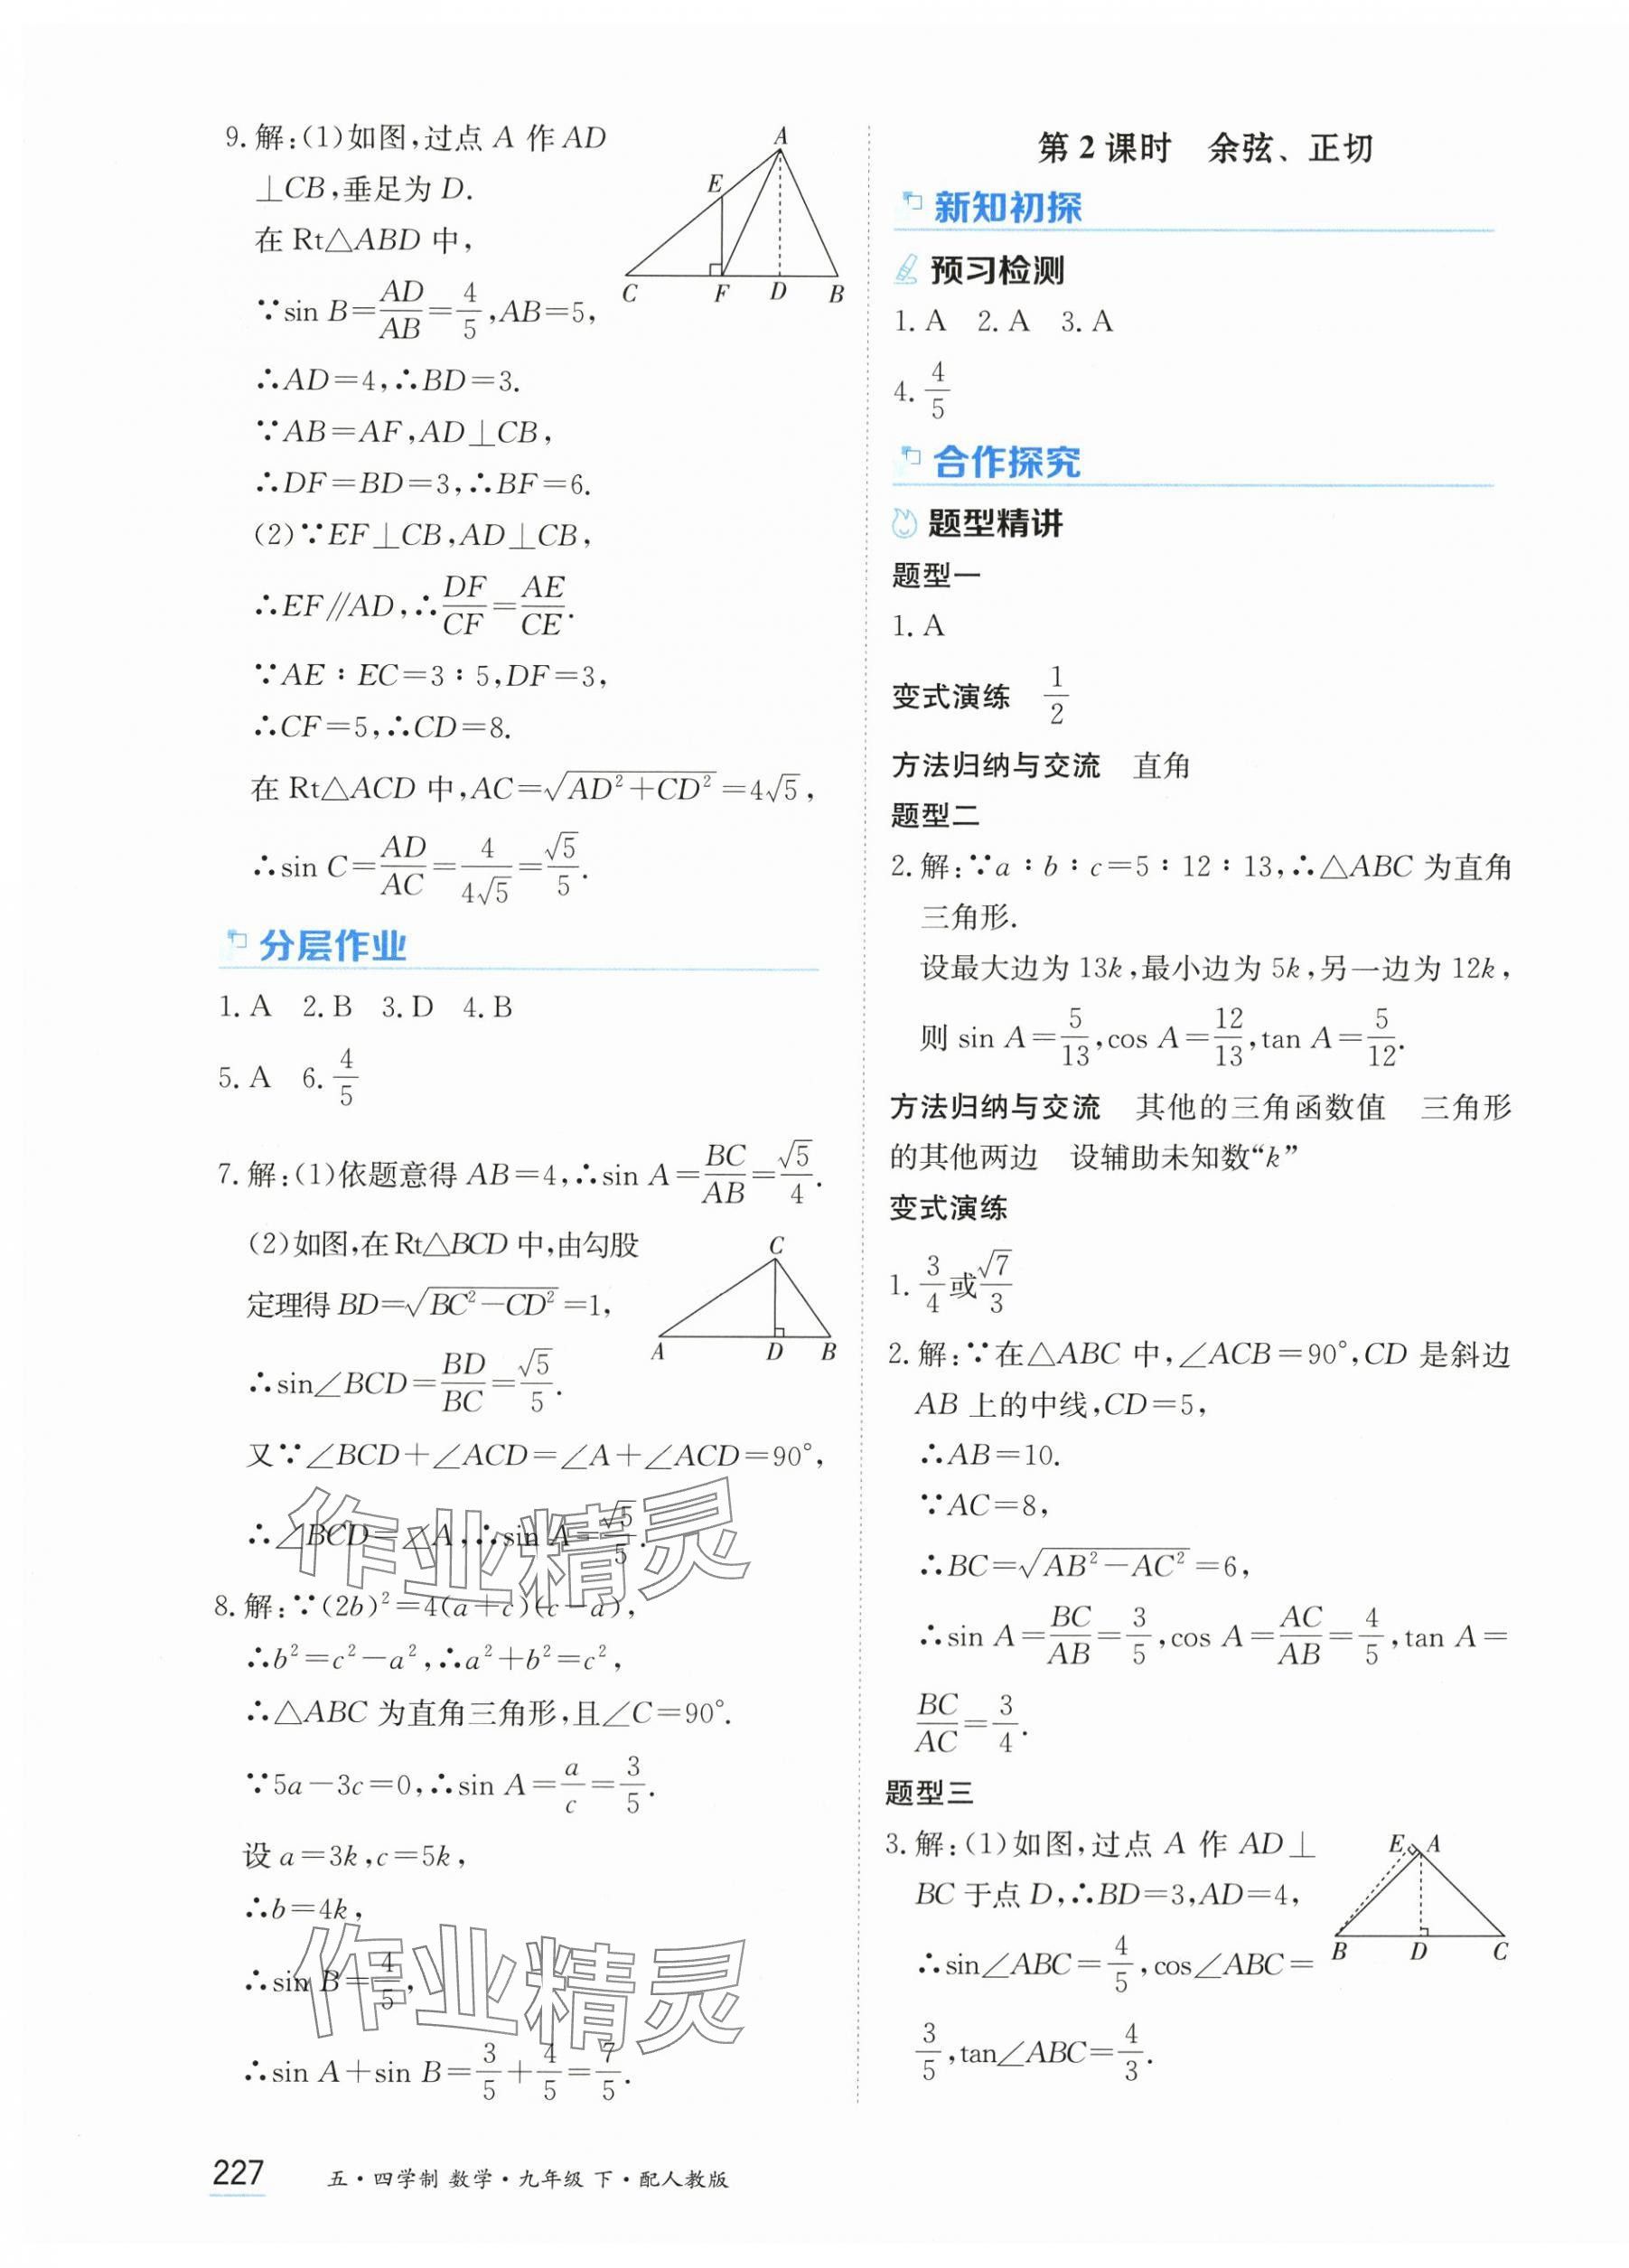 9.解:(1)如图,过点 A 作 AD
⊥CB,垂足为 D.
在 Rt△ABD 中,
∵sin B=AD/AB=4/5,AB=5,
∴AD=4,∴BD=3.
∵AB=AF,AD⊥CB,
∴DF=BD=3,∴BF=6.
(2)∵EF⊥CB,AD⊥CB,
∴EF∥AD,∴DF/CF=AE/CE.
∵AE∶EC=3∶5,DF=3,
∴CF=5,∴CD=8.
在 Rt△ACD 中,AC=√(AD²+CD²)=4√5,
∴sin C=AD/AC=4/(4√5)=√5/5.
A
E
C F D B
分层作业
1.A 2.B 3.D 4.B
5.A 6.4/5
7.解:(1)依题意得 AB=4,∴sin A=BC/AB=√5/4.
(2)如图,在Rt△BCD 中,由勾股
定理得 BD=√(BC²-CD²)=1,
∴sin∠BCD=BD/BC=√5/5.
C
A D B
又∵∠BCD+∠ACD=∠A+∠ACD=90°,
∴∠BCD=∠A,∴sin A=√5/5.
作业精灵
8.解:∵(2b)²=4(a+c)(c-a),
∴b²=c²-a²,∴a²+b²=c²,
∴△ABC 为直角三角形,且∠C=90°.
∵5a-3c=0,∴sin A=a/c=3/5.
设 a=3k,c=5k,
∴b=4k,
∴sin B=4/5,
作业精灵
∴sin A+sin B=3/5+4/5=7/5.
第 2 课时 余弦、正切
新知初探
预习检测
1.A 2.A 3.A
4.4/5
合作探究
题型精讲
题型一
1.A
变式演练 1/2
方法归纳与交流 直角
题型二
2.解:∵a∶b∶c=5∶12∶13,∴△ABC 为直角
三角形.
设最大边为 13k,最小边为 5k,另一边为 12k,
则 sin A=5/13,cos A=12/13,tan A=5/12.
方法归纳与交流 其他的三角函数值 三角形
的其他两边 设辅助未知数“k”
变式演练
1.3/4或√7/3
2.解:∵在△ABC 中,∠ACB=90°,CD 是斜边
AB 上的中线,CD=5,
∴AB=10.
∵AC=8,
∴BC=√(AB²-AC²)=6,
∴sin A=BC/AB=3/5,cos A=AC/AB=4/5,tan A=
BC/AC=3/4.
题型三
3.解:(1)如图,过点 A 作 AD⊥
BC 于点 D,∴BD=3,AD=4,
∴sin∠ABC=4/5,cos∠ABC=
3/5,tan∠ABC=4/3.
E A
B D C
227 五·四学制 数学·九年级 下·配人教版